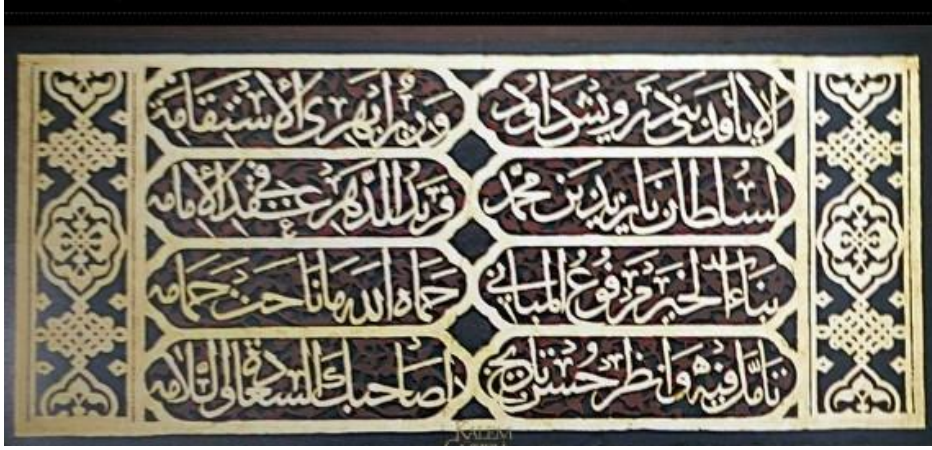 الا يا قد بنى درويش داود وزير ابهرى الاستقامة
لسلطان بايزيد بن محمد فريد الدهر في عقد الامامه
بناء الخير مرفوع المباني حماه الله ما ناحت حمامه
تامل فيه وانظر حسن تاريخ لصاحبك السعادة والسلامه
KALEM